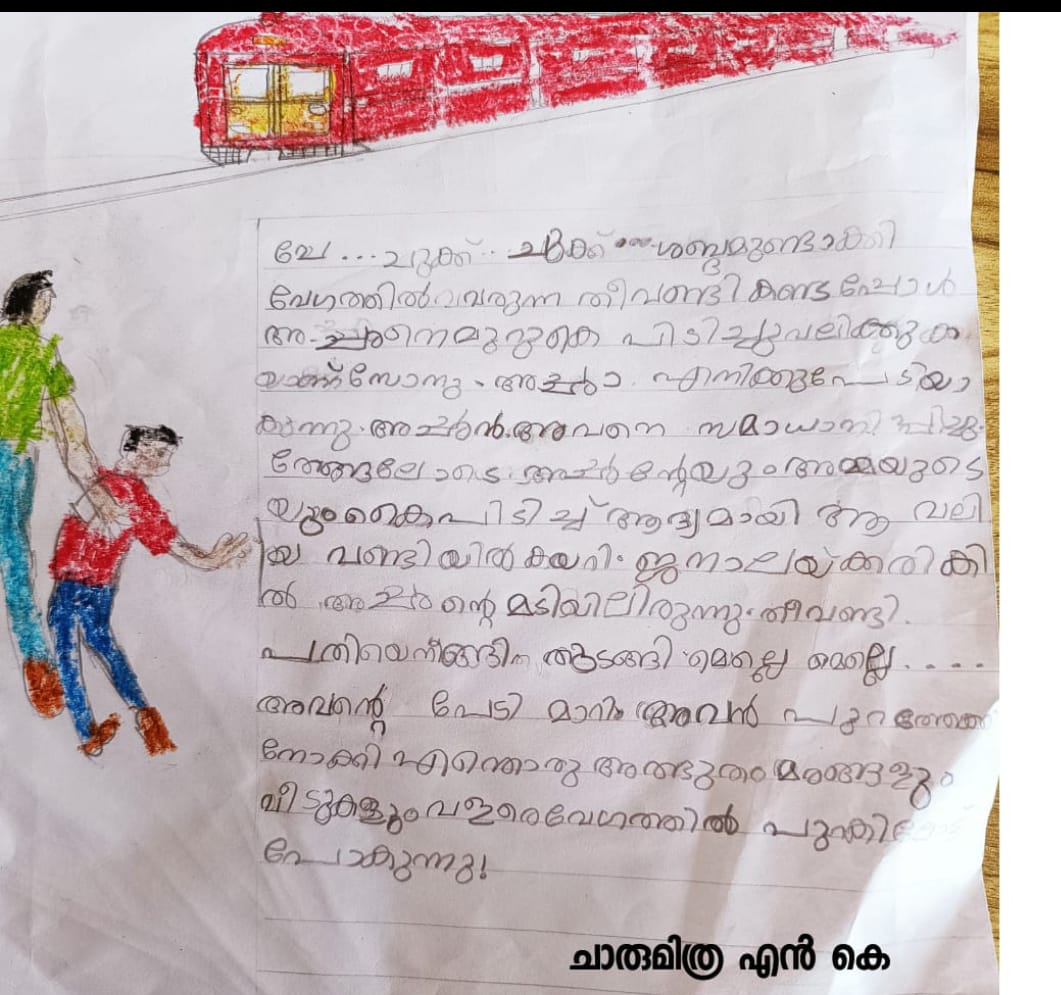 ഛേ... ചുക്ക്.. ചുക്ക് ... ശബ്ദമുണ്ടാക്കി
വേഗത്തിൽ വരുന്ന തീവണ്ടി കണ്ടപ്പോൾ
അച്ഛനെ മുറുകെ പിടിച്ചുവലിക്കുക
യാണ് സോനു. അച്ഛാ. എനിക്കുപേടിയാ
കുന്നു. അച്ഛൻ. അവനെ സമാധാനിപ്പിച്ചു.
അച്ഛന്റേയും അമ്മയുടെ
യും കൈപിടിച്ച് ആദ്യമായി ആ വലി
യ വണ്ടിയിൽ കയറി. ജനാലയ്ക്കരികി
ൽ അച്ഛന്റെ മടിയിലിരുന്നു. തീവണ്ടി.
പതിയെ നീങ്ങി തുടങ്ങി മെല്ലെ മെല്ലെ....
അവന്റെ പേടി മാറി. അവൻ പുറത്തേക്ക്
നോക്കി എന്തൊരു അത്ഭുതം മരങ്ങളും
വീടുകളും വളരെ വേഗത്തിൽ
പോകുന്നു!
ചാരുമിത്ര എൻ കെ